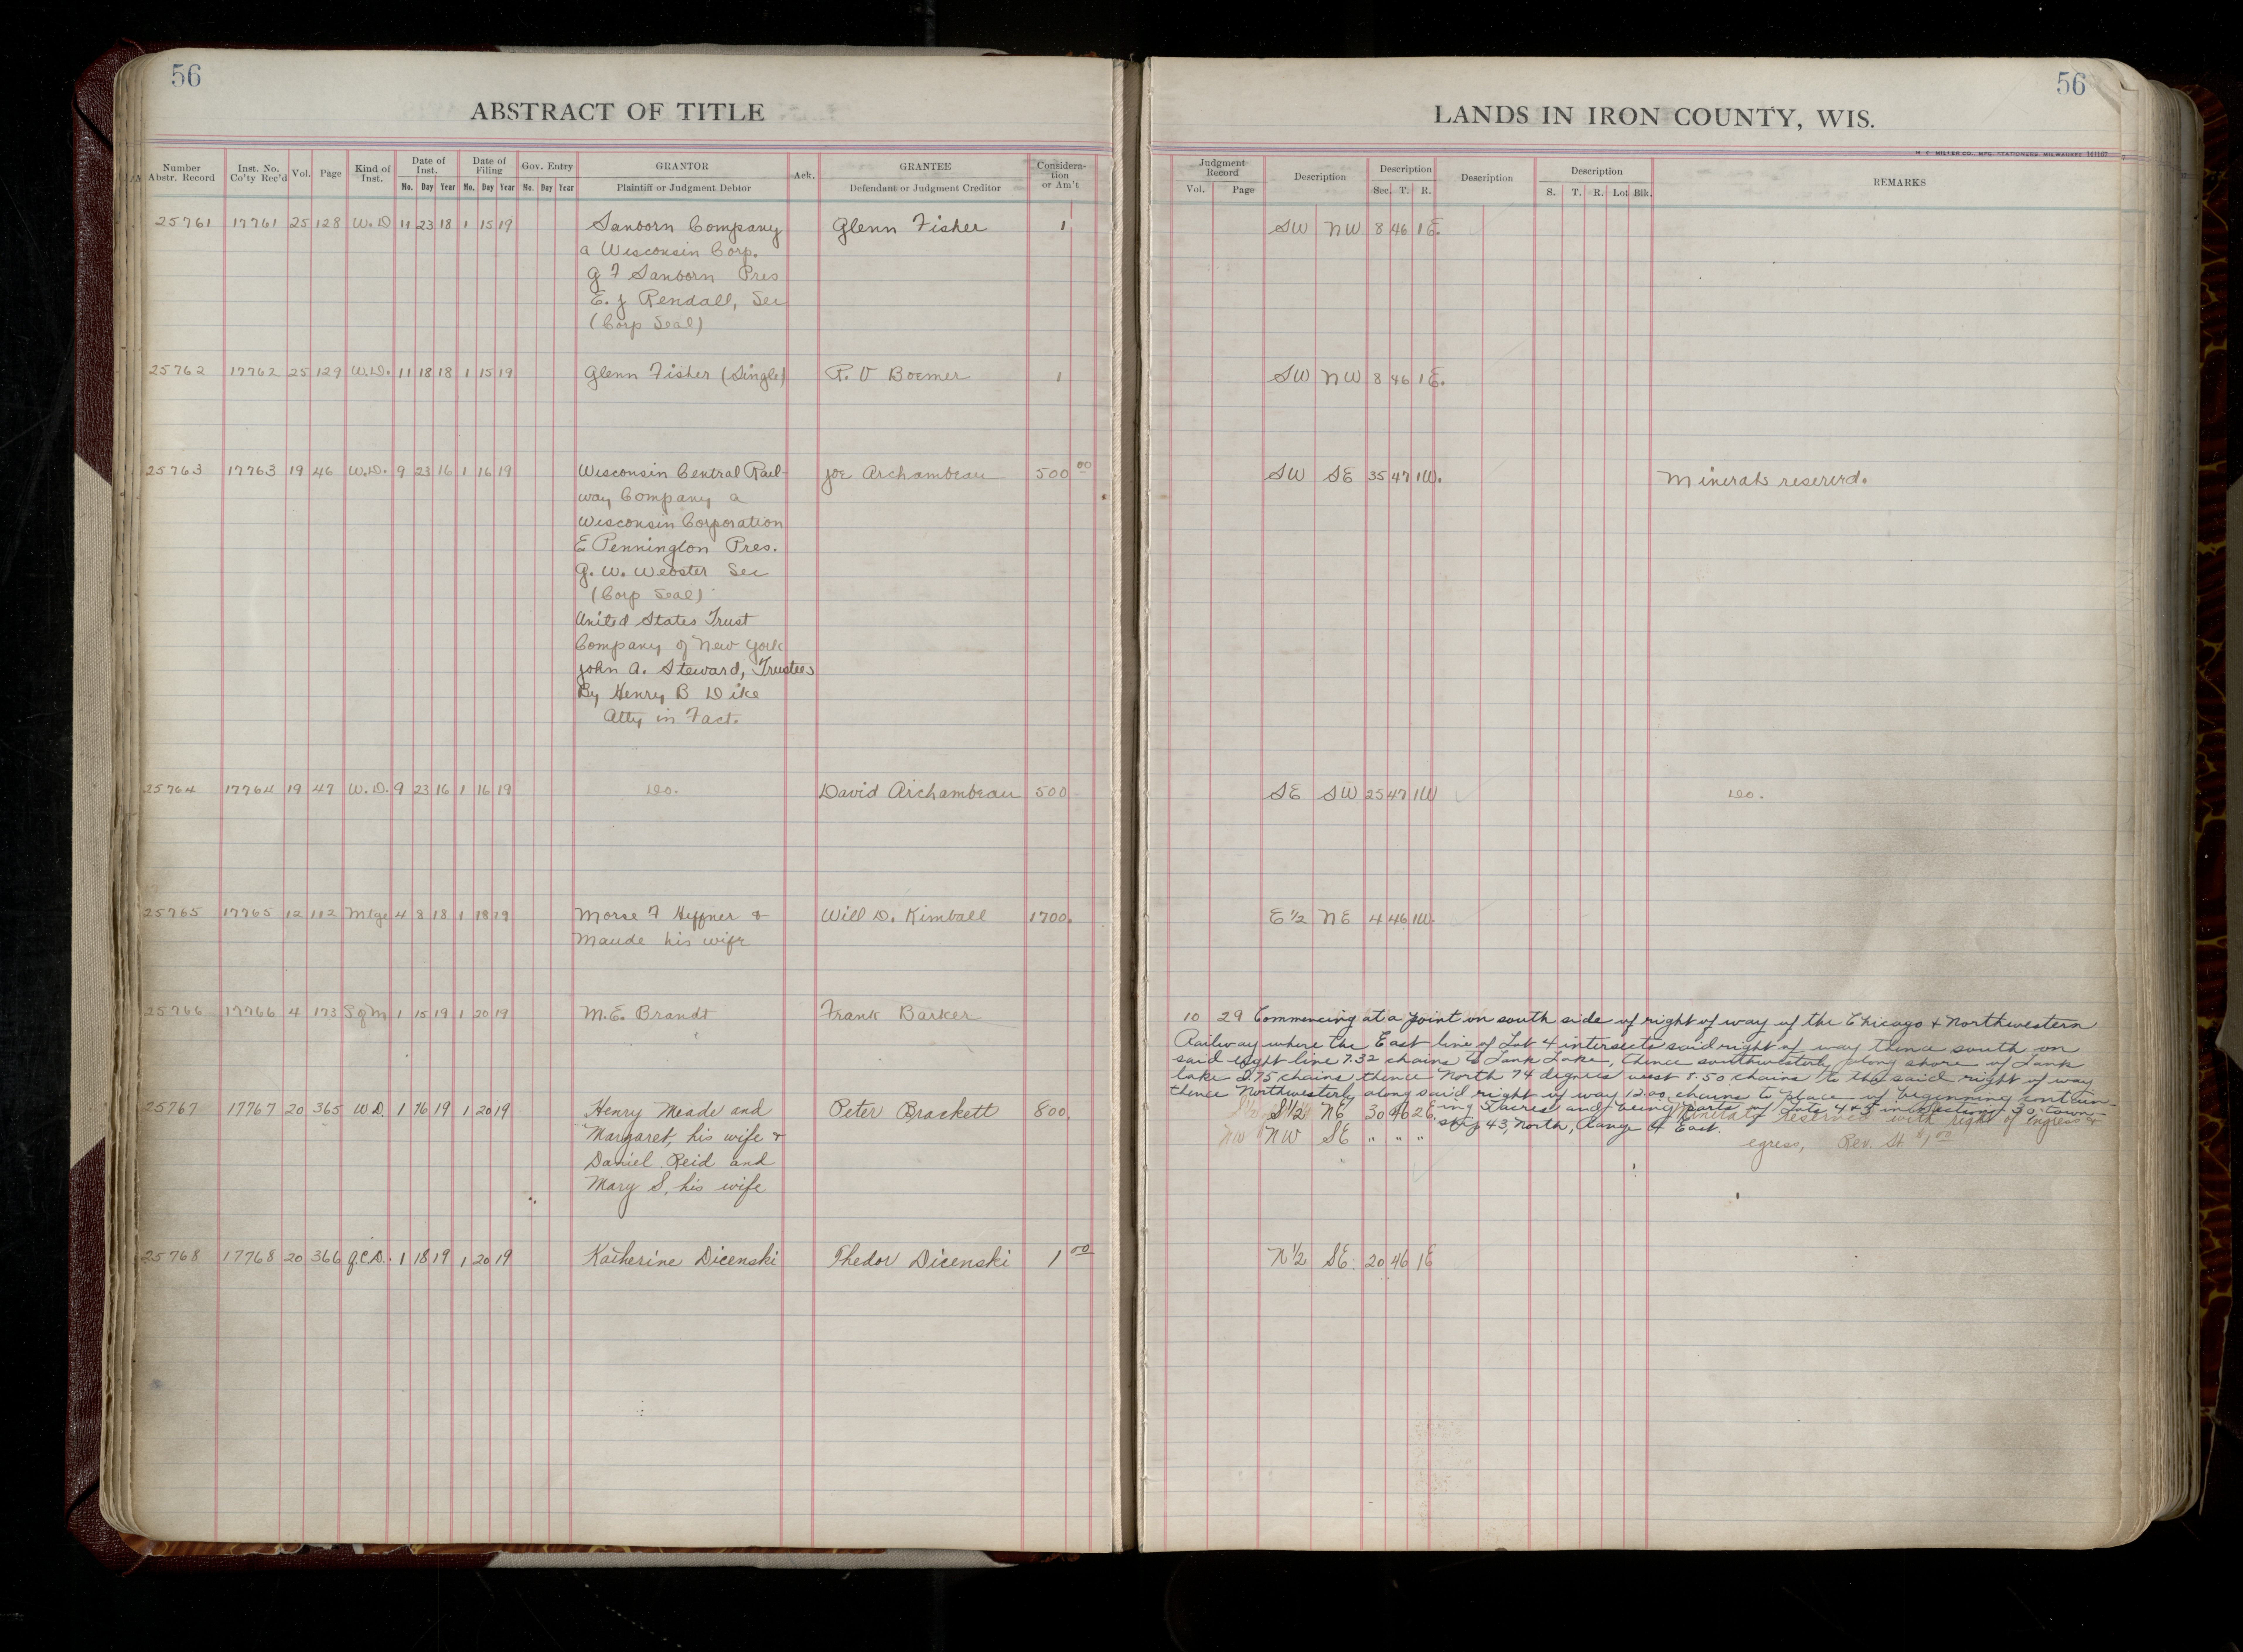 56
ABSTRACT OF TITLE
Number Abstr. Record | Inst. No. Co'ty Rec'd | Vol. | Page | Kind of Inst. | Date of Inst. Mo. Day Year | Date of Filing Mo. Day Year | Gov. Entry Mo. Day Year | GRANTOR Plaintiff or Judgment Debtor | Ack. | GRANTEE Defendant or Judgment Creditor | Consideration or Am't
25761 17761 25 128 W.D 11 23 18 1 15 19 Sanborn Company Glenn Fisher 1
a Wisconsin Corp.
G F Sanborn Pres
E. J Rendall, Sec
(Corp Seal)
25762 17762 25 129 W.D. 11 18 18 1 15 19 Glenn Fisher (Single) R. V Boemer 1
25763 17763 19 46 W.D. 9 23 16 1 16 19 Wisconsin Central Rail- Joe Archambeau 500 00
way Company a
Wisconsin Corporation
E Pennington Pres.
G. W. Webster Sec
(Corp Seal)
United States Trust
Company of New York
John A. Steward, Trustees
By Henry B Dike
Atty in Fact.
25764 17764 19 47 W.D. 9 23 16 1 16 19 Do. David Archambeau 500
25765 17765 12 112 Mtge 4 8 18 1 18 19 Morse F Heffner & Will D. Kimball 1700.
Maude his wife
25766 17766 4 173 1 15 19 1 20 19 M.E. Brandt Frank Barker
25767 17767 20 365 W D. 1 16 19 1 20 19 Henry Meade and Peter Brackett 800
Margaret, his wife &
Daniel Reid and
Mary S, his wife
25768 17768 20 366 Q.C.D. 1 18 19 1 20 19 Katherine Dicenski Thedor Dicenski 1 00
56
LANDS IN IRON COUNTY, WIS.
H. F. MILLER CO., MFG. STATIONERS, MILWAUKEE
Judgment Record Vol. Page | Description | Description Sec. T. R. | Description | Description S. T. R. Lot Blk. | REMARKS
SW NW 8 46 1 E.
SW NW 8 46 1 E.
SW SE 35 47 1W. Minerals reserved.
SE SW 25 47 1W Do.
E 1/2 NE 4 46 1W.
10 29 Commencing at a point on south side of right of way of the Chicago & Northwestern
Railway where the East line of Lot 4 intersects said right of way thence south on
said eight line 7.32 chains to Tank Lake, thence southwesterly along shore of Tank
lake 2.75 chains thence North 74 degrees west 8.50 chains to the said right of way
thence Northwesterly along said right of way 12.00 chains to place of beginning contain-
ing acres and being parts of Lots 4 & 5 in Section 30. town-
ship 43, North, Range 4 East.
S 1/2 NE 30 46 2E Minerals reserved with right of ingress &
NW SE " " " egress, Rev. St $1.00
N 1/2 SE. 20 46 1E